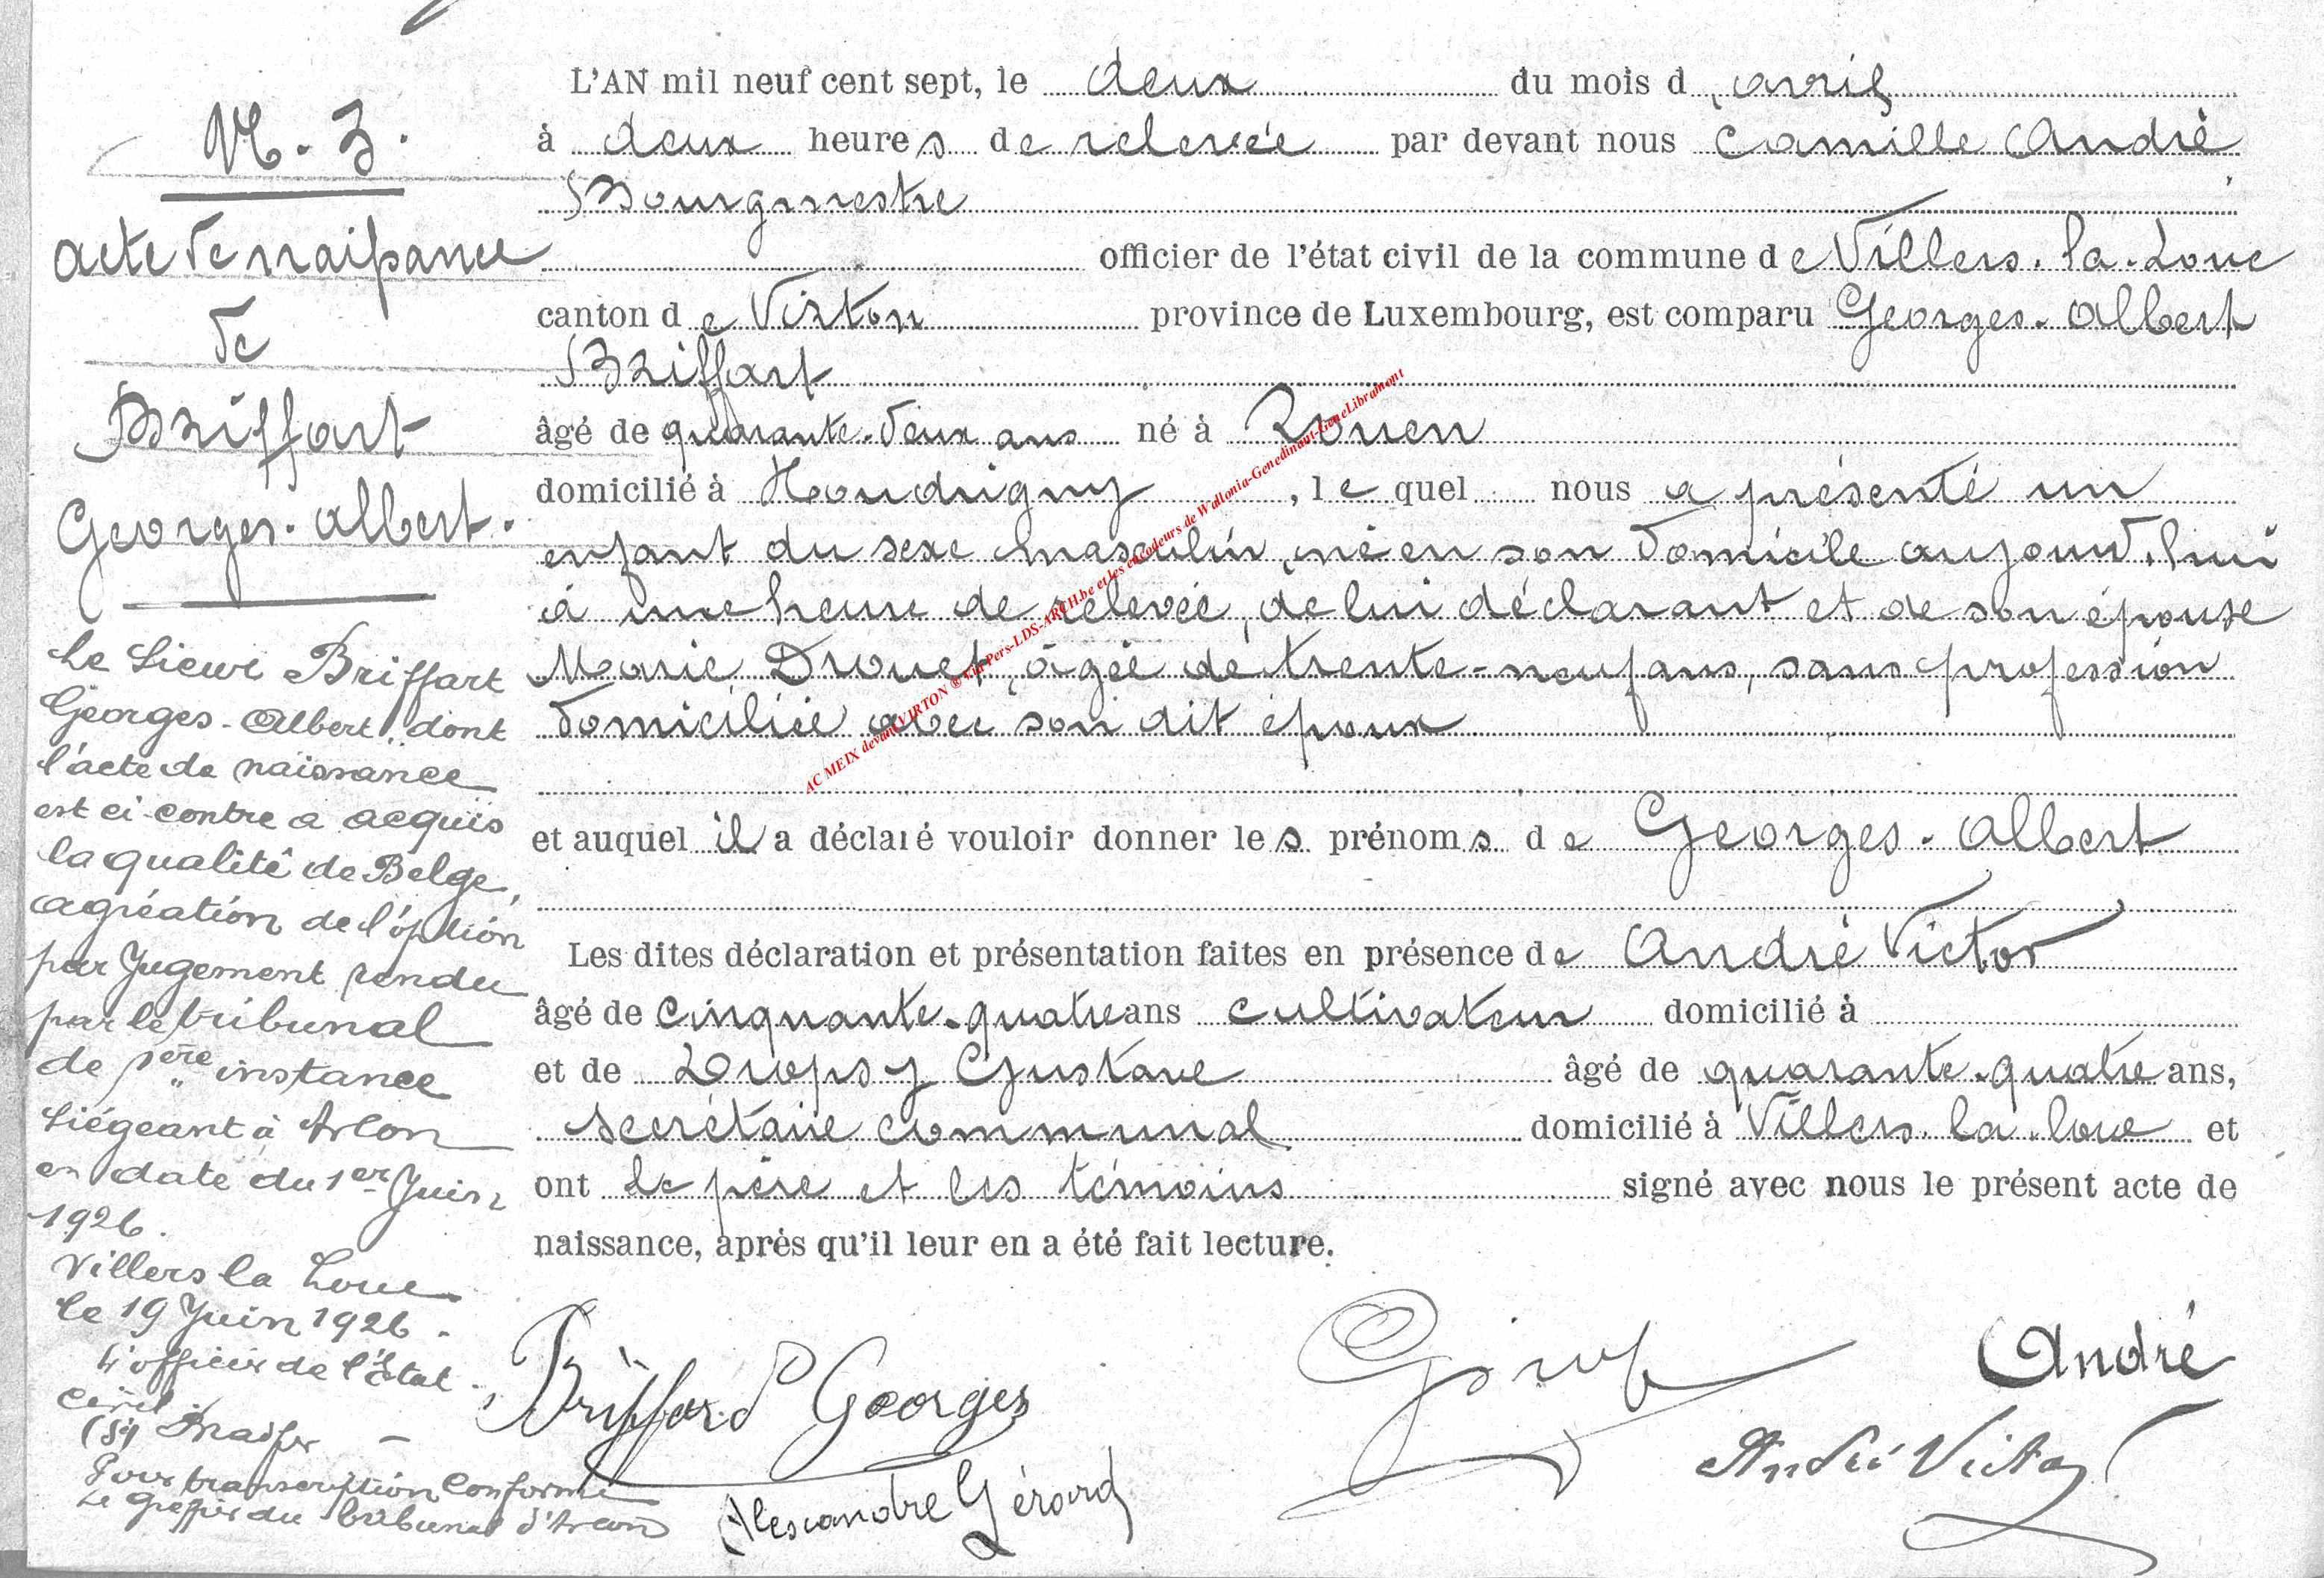 N. 3.
acte de naissance
de
Briffart
Georges-Albert.
Le Sieur Briffart
Georges-Albert, dont
l'acte de naissance
est ci contre a acquis
la qualité de Belge,
agréation de l'option
par Jugement rendu
par le tribunal
de 1ère instance
siégeant à Arlon
en date du 1er Juin
1926.
Villers la Loue
le 19 Juin 1926.
L'officier de l'État
civil
(Sé)
Pour transcription conforme
Le Greffier du tribunal d'Arlon
L'AN mil neuf cent sept, le deux du mois d'avril
à deux heures de relevée par devant nous Camille André,
Bourgmestre
officier de l'état civil de la commune de Villers-la-Loue
canton de Virton province de Luxembourg, est comparu Georges-Albert
Briffart
âgé de quarante-deux ans né à Rouen
domicilié à Houdrigny, lequel nous a présenté un
enfant du sexe masculin, né en son domicile aujourd'hui
à une heure de relevée, de lui déclarant et de son épouse
Marie Drouet, âgée de trente-neuf ans, sans profession
domiciliée avec son dit époux
et auquel il a déclaré vouloir donner les prénoms de Georges-Albert
Les dites déclaration et présentation faites en présence de André Victor
âgé de cinquante-quatre ans cultivateur domicilié à
et de Dropsy Gustave âgé de quarante-quatre ans,
secrétaire communal domicilié à Villers-la-loue et
ont le père et les témoins signé avec nous le présent acte de
naissance, après qu'il leur en a été fait lecture.
Briffard Georges
André
Alexandre Gérard
André Victor
AC MEIX devant VIRTON © via Pers-LDS-ARCH.be et les encodeurs de Wallonia-Genedinant-GeneLibramont